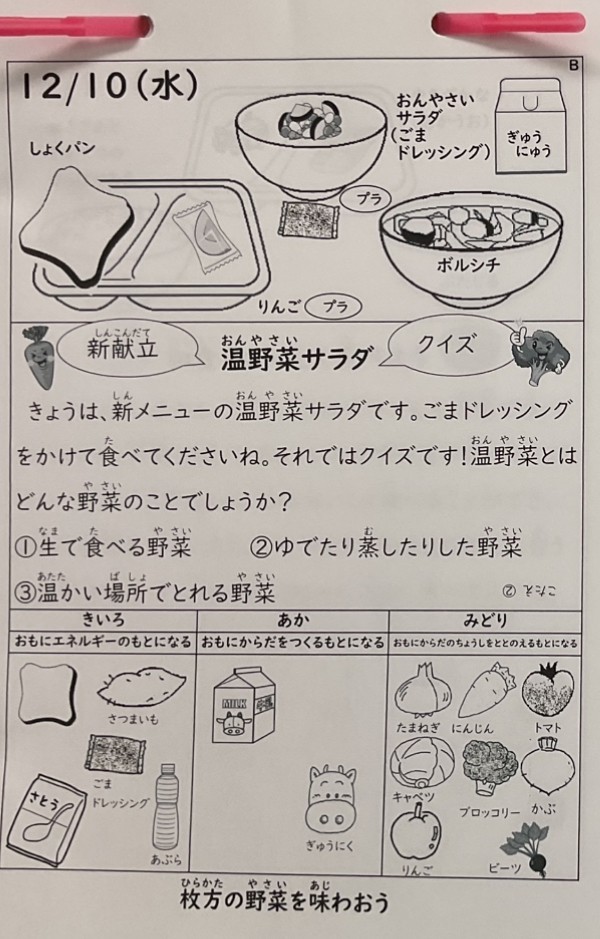 B
12/10(水)
しょくパン
おんやさい
サラダ
(ごま
ドレッシング)
ぎゅう
にゅう
プラ
ボルシチ
りんご プラ
しんこんだて
新献立
おんやさい
温野菜サラダ
クイズ
きょうは、新メニューの温野菜サラダです。ごまドレッシング
をかけて食べてくださいね。それではクイズです!温野菜とは
どんな野菜のことでしょうか?
①生で食べる野菜 ②ゆでたり蒸したりした野菜
③温かい場所でとれる野菜
こたえ ②
きいろ あか みどり
おもにエネルギーのもとになる おもにからだをつくるもとになる おもにからだのちょうしをととのえるもとになる
さつまいも
ごま
ドレッシング
さとう
あぶら
MILK
ぎゅうにく
たまねぎ にんじん トマト
キャベツ ブロッコリー かぶ
りんご ビーツ
ひらかた やさい あじ
枚方の野菜を味わおう